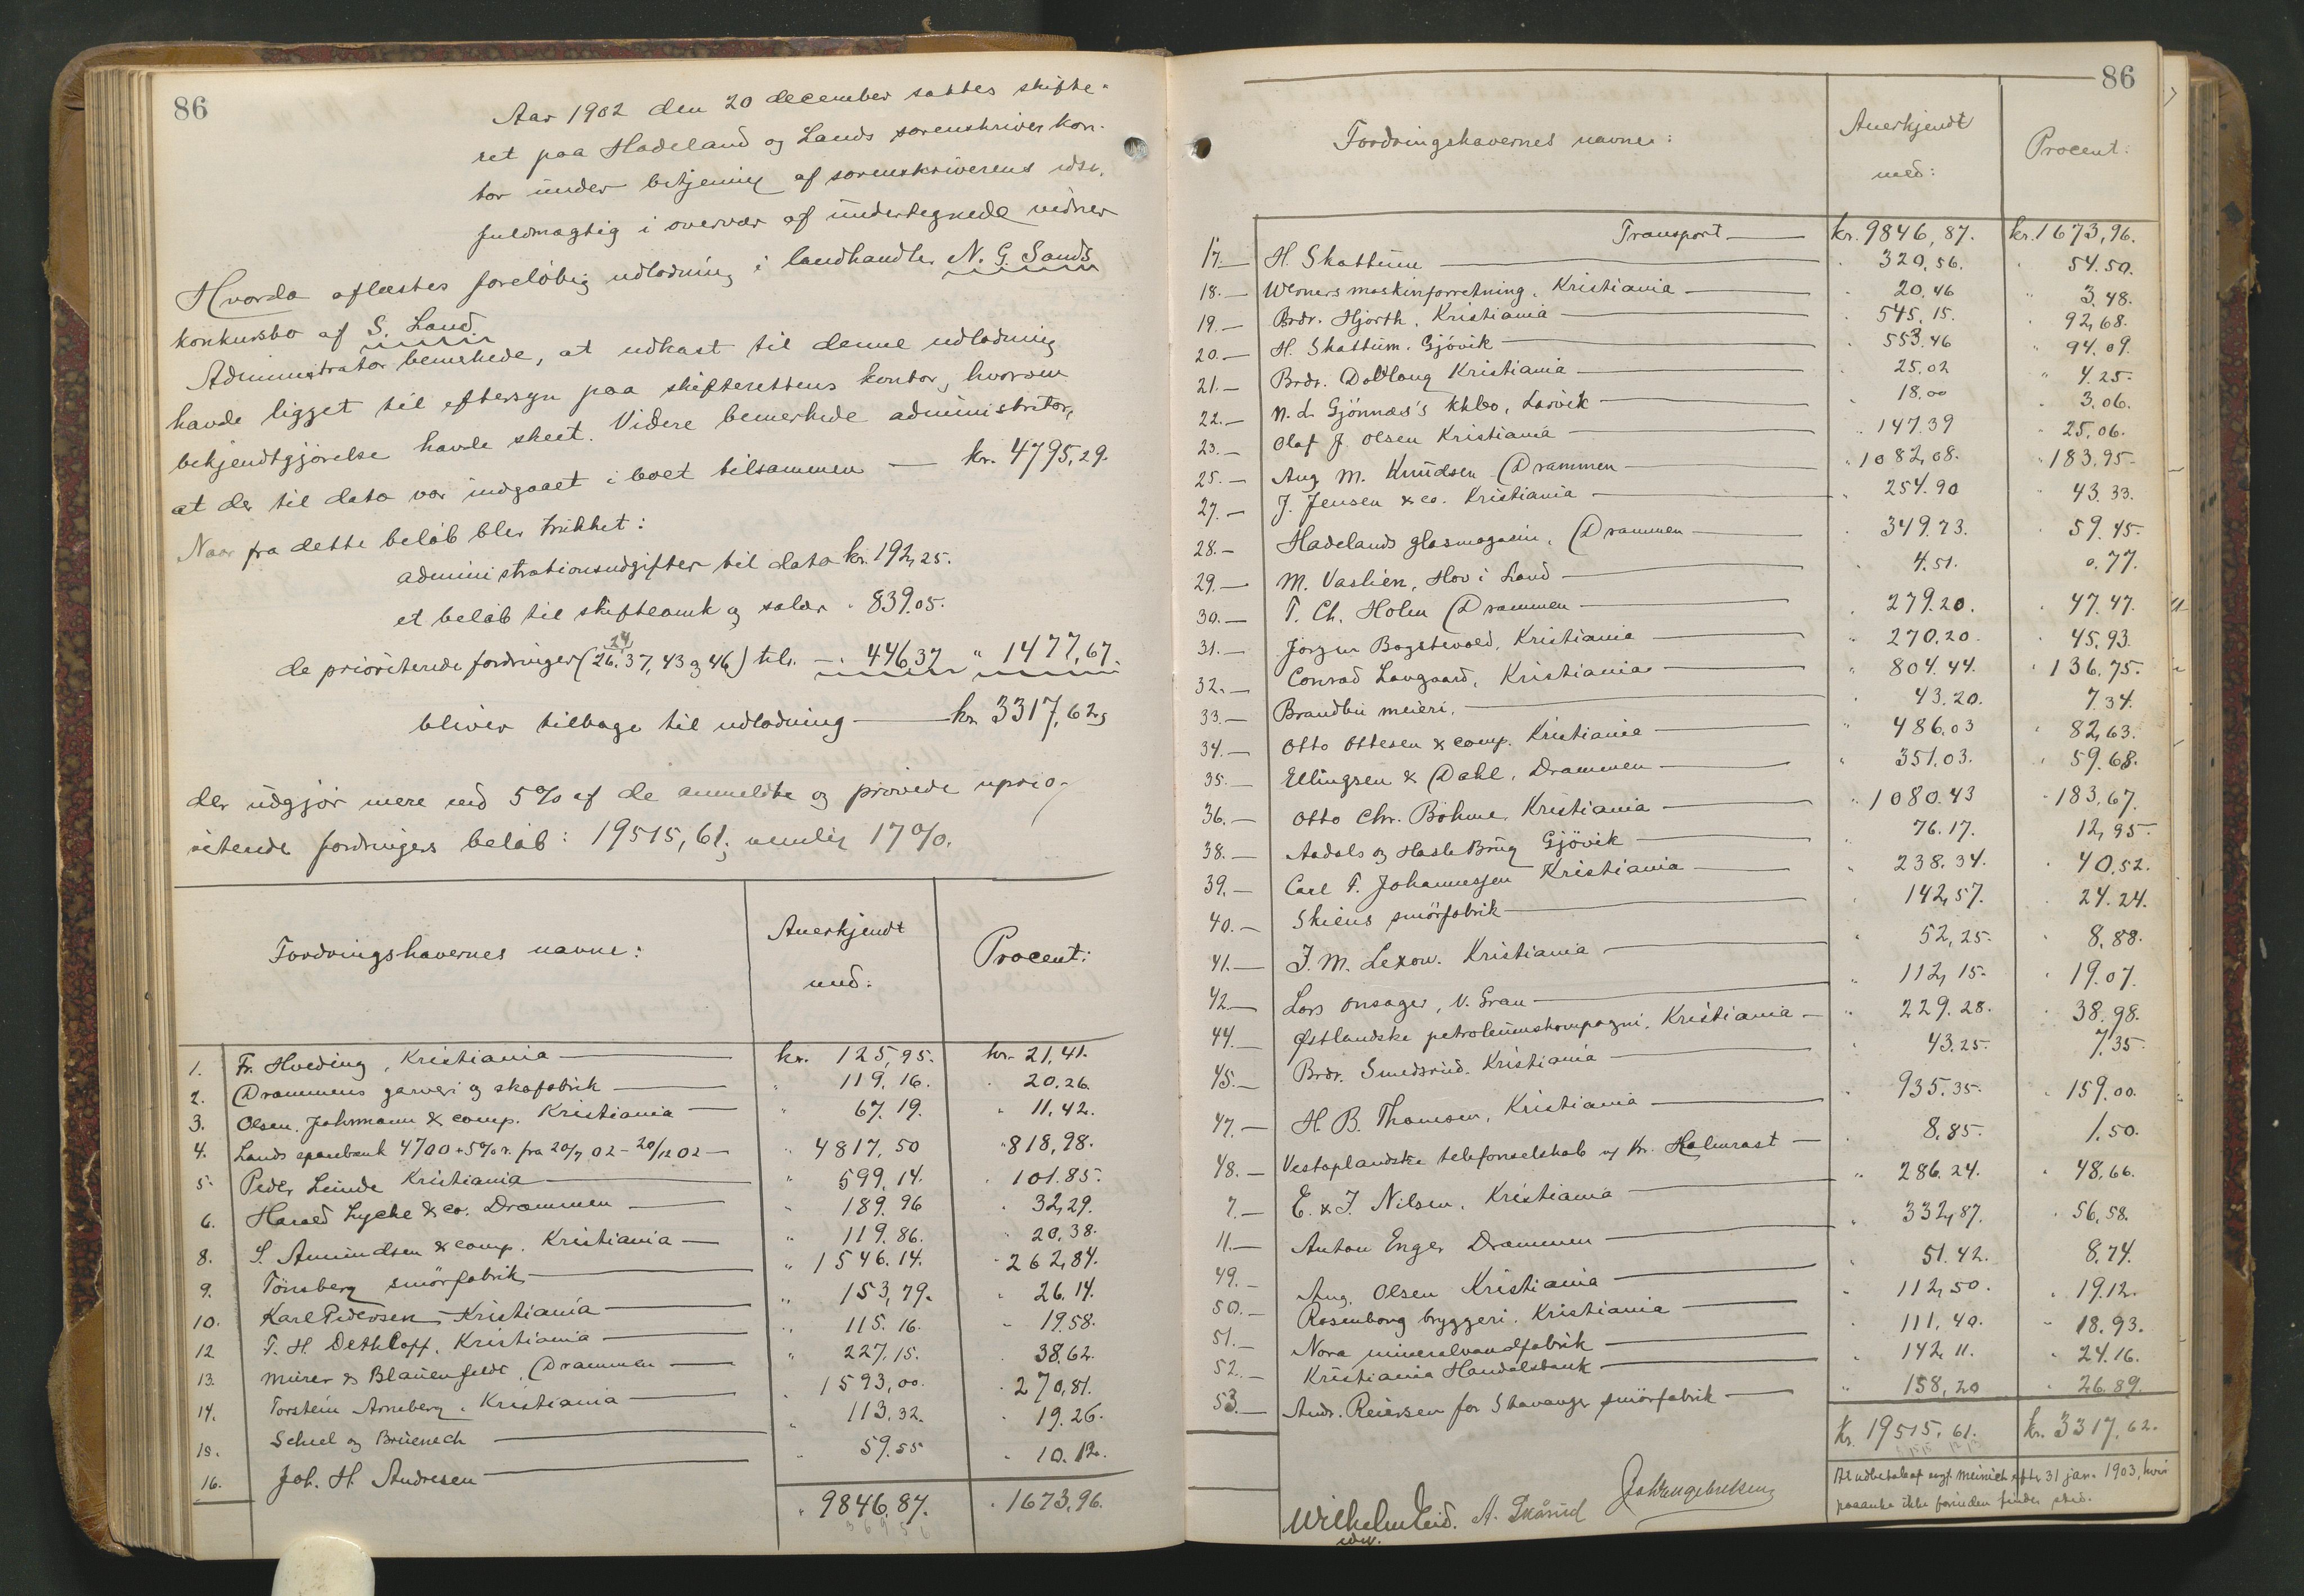 86
Aar 1902 den 20 december sattes skifte-
ret paa Hadeland og Lands sorenskriverkon-
tor under betjening af sorenskriverens edsv.
fuldmægtig i overvær af undertegnede vidner
Hvorda aflæstes foreløbig udlodning i landhandler N. G. Sands
konkursbo af S. Land.
Administrator bemerkede, at udkast til denne udlodning
havde ligget til eftersyn paa skifterettens kontor, hvorom
bekjendtgjørelse havde skeet. Videre bemerkede administrator,
at der til dato var indgaaet i boet tilsammen — kr. 4795,29.
Naar fra dette beløb blev trukket:
administrationsudgifter til dato kr. 192,25.
et beløb til skifteomk og salær " 839.05.
24
de prioriterede fordringer (26. 37, 43 og 46) tils. — " 446,37 " 1477,67.
bliver tilbage til udlodning — kr. 3317,62,
der udgjør mere end 5% af de anmeldte og prøvede uprio-
riterede fordringers beløb: 19515,61; nemlig 17%.
Fordringshavernes navne: Anerkjendt med: Procent:
1. Fr. Hveding, Kristiania — kr. 125,95. kr. 21,41.
2. Drammens garveri og skofabrik — " 119,16. " 20.26.
3. Olsen. Johrmann & comp. Kristiania — " 67.19. " 11,42.
4. Lands sparebank 4700 + 5% r. fra 20/7 02 - 20/12 02 — " 4817,50 " 818,98.
5. Peder Lunde Kristiania — " 599,14. " 101.85.
6. Harald Lyche & co. Drammen — " 189.96 " 32,29.
8. S. Amundsen & comp. Kristiania — " 119.86. " 20,38.
9. Tönsberg smörfabrik — " 1546.14. " 262,84.
10. Karl Pedersen Kristiania — " 153,79. " 26.14.
12 F. H. Dethloff. Kristiania — " 115.16. " 19.58.
13. Meirer & Blauenfeldt, Drammen — " 227,15. 38,62.
14. Torstein Arneberg. Kristiania — " 1593,00. " 270,81.
15. Schiel og Bruenech — " 113,32. " 19.26.
16. Joh. H. Andresen — " 59.55 " 10.12.
" 9846,87. " 1673,96.
86
Fordringshavernes navne: Anerkjendt med: Procent:
Transport — kr. 9846,87. kr. 1673,96.
17. — H. Skattum — " 320,56. " 54.50.
18. — Werners maskinforretning. Kristiania — " 20,46 " 3,48.
19. — Brdr. Hjorth. Kristiania — " 545,15. " 92,68.
20. — H. Skattum. Gjövik — " 553.46 " 94.09.
21. — Brdr. Dobloug Kristiania — " 25.02 " 4.25.
22. — N. L. Gjönnæs's kkbo, Larvik — " 18.00 " 3.06.
23. — Olaf J. Olsen Kristiania — " 147.39 " 25,06.
25. — Aug M. Knudsen Drammen — " 1082,08. " 183.95
27. — J. Jensen & co. Kristiania — " 254.90 " 43.33.
28. — Hadelands glasmagasin, Drammen — " 349.73. " 59.45.
29. — M. Vaslien, Hov i Land — " 4.51. 0.77.
30. — T. Ch. Holm Drammen — " 279.20. " 47.47.
31. — Jörgen Bogstevold, Kristiania — " 270,20. " 45,93.
32. — Conrad Langaard, Kristiania — " 804.44. " 136,75.
33. — Brandbu meieri. — " 43.20. 7.34.
34. — Otto Ottesen & comp. Kristiania — " 486.03 " 82,63.
35. — Ellingsen & Dahl, Drammen — " 351.03. " 59.68.
36. — Otto Chr. Böhme, Kristiania — " 1080.43 " 183,67.
38. — Aadals og Hasle Brug Gjövik — " 76.17. 12,95.
39. — Carl F. Johannessen Kristiania — " 238.34. " 40,52.
40. — Skiens smörfabrik — " 142,57. " 24.24.
41. — J. M. Lexow. Kristiania — " 52,25. " 8,88.
42 — Lars Onsager, N. Gran — " 112,15. " 19.07.
44. — Østlandske petroleumskompagni, Kristiania — " 229.28. " 38.98.
45. — Brdr. Smedsrud. Kristiania — " 43.25. 7,35.
47. — H. B. Thomsen, Kristiania — " 935.35. " 159.00.
48. — Vestoplandske telefonselskab v/ Kr. Holmrast — " 8,85. 1,50.
7. — E. & J. Nilsen. Kristiania — " 286.24. " 48,66.
11. — Anton Enger Drammen — " 332,87. " 56,58.
49. — Aug. Olsen Kristiania — " 51.42. 8,74.
50. — Rosenborg bryggeri. Kristiania — " 112,50. " 19.12.
51. — Nora mineralvandfabrik — " 111,40. " 18.93.
52. — Kristiania Handelsbank — " 142,11. " 24.16.
53. — Andr. Reiersen for Stavanger smörfabrik — " 158,20 " 26.89.
Kr. 19515,61. kr. 3317,62.
31 jan. 1903, hvis
paaanke ikke forinden finder sted.
Wilhelm Eid. A. Skårud
edsv.